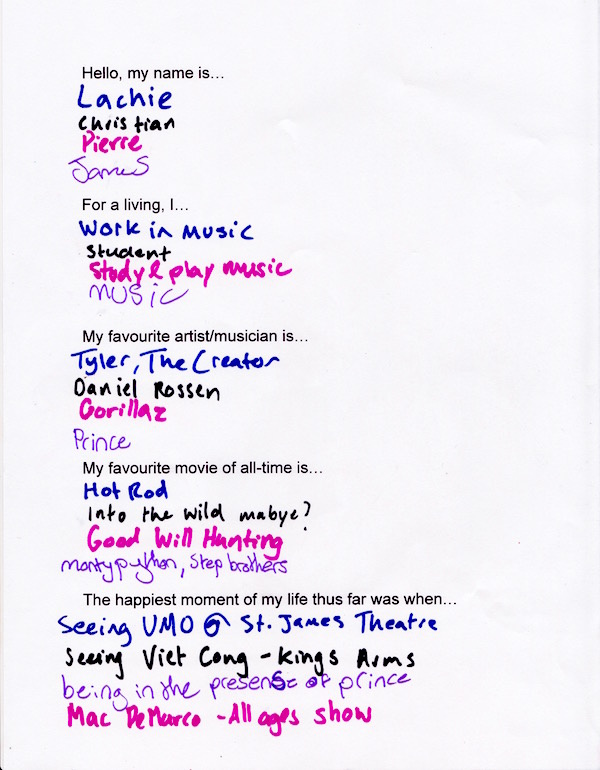 Hello, my name is…
Lachie
Christian
Pierre
James
For a living, I…
Work in Music
Student
Study & play music
music
My favourite artist/musician is…
Tyler, The Creator
Daniel Rossen
Gorillaz
Prince
My favourite movie of all-time is…
Hot Rod
Into the wild mabye?
Good Will Hunting
monty python, Step brothers
The happiest moment of my life thus far was when…
Seeing UMO @ St. James Theatre
Seeing Viet Cong - Kings Arms
being in the presense of prince
Mac DeMarco - All ages show